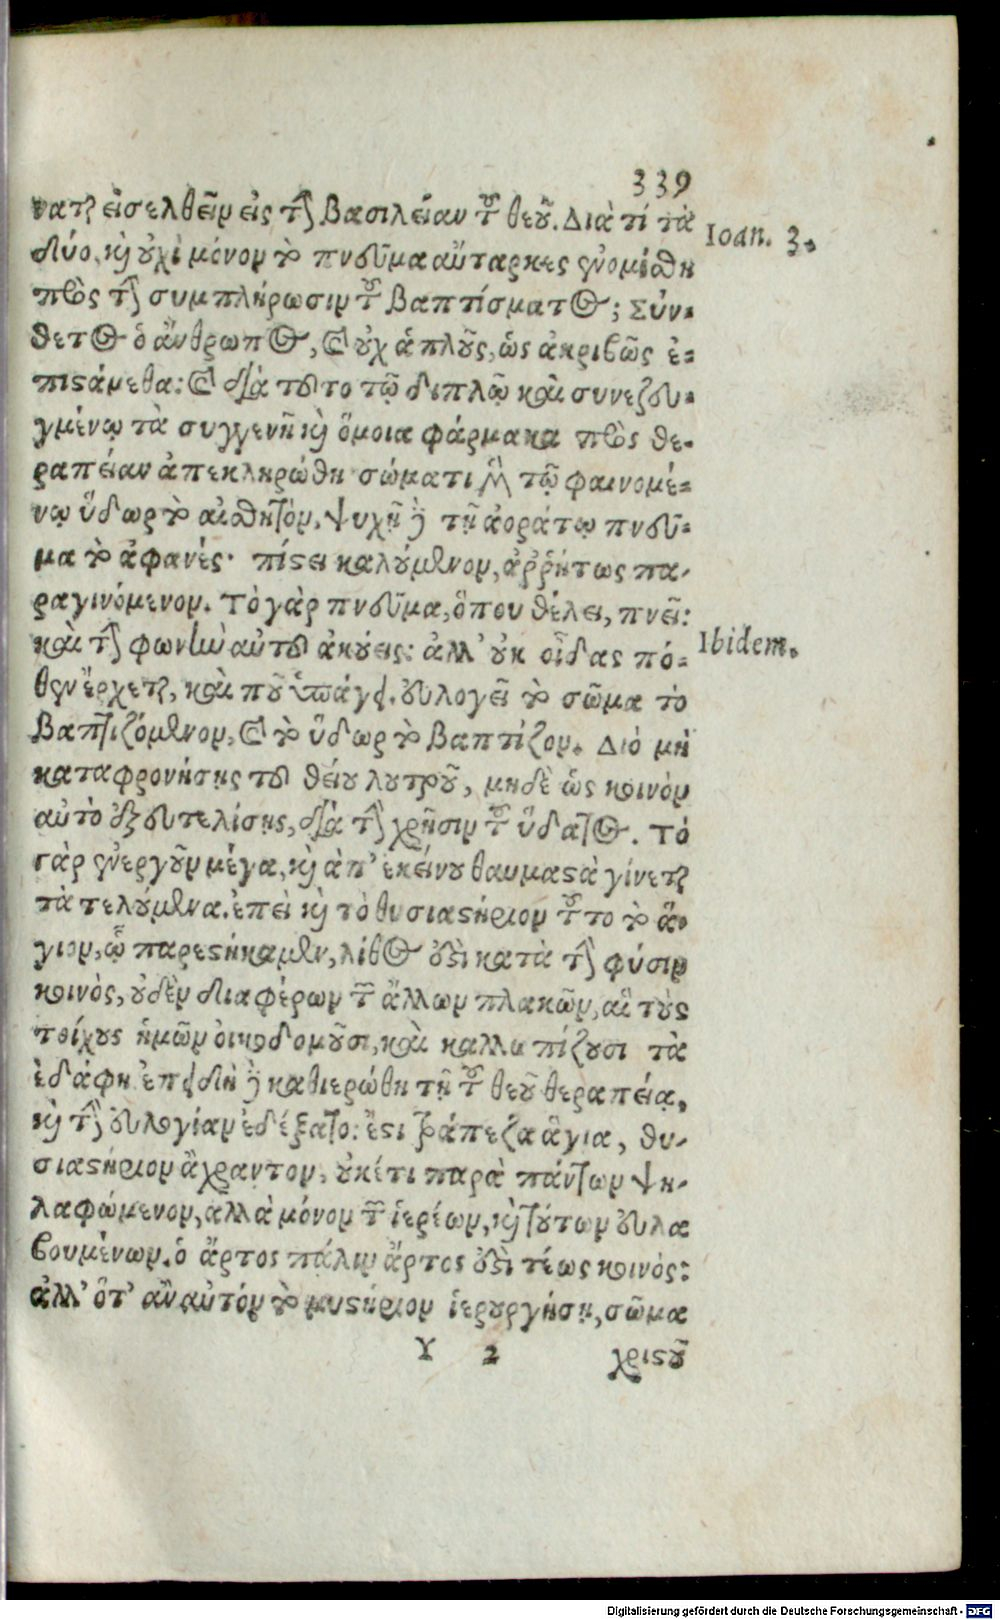 339
ναται εἰσελθεῖν εἰς τὴν βασιλείαν τοῦ θεοῦ. Διὰ τί τὰ
Ioan. 3.
δύο, καὶ οὐχὶ μόνον τὸ πνεῦμα αὔταρκες ἐνομίσθη
πρὸς τὴν συμπλήρωσιν τοῦ βαπτίσματος; Σύν-
θετος ὁ ἄνθρωπος, καὶ οὐχ ἁπλοῦς, ὡς ἀκριβῶς ἐ-
πιστάμεθα: καὶ διὰ τοῦτο τῷ διπλῷ καὶ συνεζευ-
γμένῳ τὰ συγγενῆ καὶ ὅμοια φάρμακα πρὸς θε-
ραπείαν ἀπεκληρώθη σώματι μὲν τῷ φαινομέ-
νῳ ὕδωρ τὸ αἰσθητὸν, ψυχῇ δὲ τῇ ἀοράτῳ πνεῦ-
μα τὸ ἀφανές· πίστει καλούμενον, ἀῤῥήτως πα-
ραγινόμενον. Τὸ γὰρ πνεῦμα, ὅπου θέλει, πνεῖ:
καὶ τὴν φωνὴν αὐτοῦ ἀκούεις: ἀλλ' οὐκ οἶδας πό-
Ibidem.
θεν ἔρχεται, καὶ ποῦ ὑπάγει. εὐλογεῖ τὸ σῶμα τὸ
βαπτιζόμενον, καὶ τὸ ὕδωρ τὸ βαπτίζον. Διό μὴ
καταφρονήσῃς τοῦ θείου λουτροῦ, μηδὲ ὡς κοινὸν
αὐτὸ ἐξευτελίσῃς, διὰ τὴν χρῆσιν τοῦ ὕδατος. Τό
γὰρ ἐνεργοῦν μέγα, καὶ ἀπ' ἐκείνου θαυμαστὰ γίνεται
τὰ τελούμενα. ἐπεὶ καὶ τὸ θυσιαστήριον τοῦτο τὸ ἅ-
γιον, ᾧ παρεστήκαμεν, λίθος ἐστὶ κατὰ τὴν φύσιν
κοινὸς, οὐδὲν διαφέρων τῶν ἄλλων πλακῶν, αἳ τοὺς
τοίχους ἡμῶν οἰκοδομοῦσι, καὶ καλλωπίζουσι τὰ
ἐδάφη. ἐπειδὴ δὲ καθιερώθη τῇ τοῦ θεοῦ θεραπείᾳ,
καὶ τὴν εὐλογίαν ἐδέξατο: ἔστι τράπεζα ἅγια, θυ-
σιαστήριον ἄχραντον, οὐκέτι παρὰ πάντων ψη-
λαφώμενον, ἀλλὰ μόνον τῶν ἱερέων, καὶ τούτων εὐλα
βουμένων. ὁ ἄρτος πάλιν ἄρτος ἐστὶ τέως κοινός:
ἀλλ' ὅτ' ἂν αὐτόν τὸ μυστήριον ἱερουργήσῃ, σῶμα
Y 2 χριστοῦ
Digitalisierung gefördert durch die Deutsche Forschungsgemeinschaft - DFG